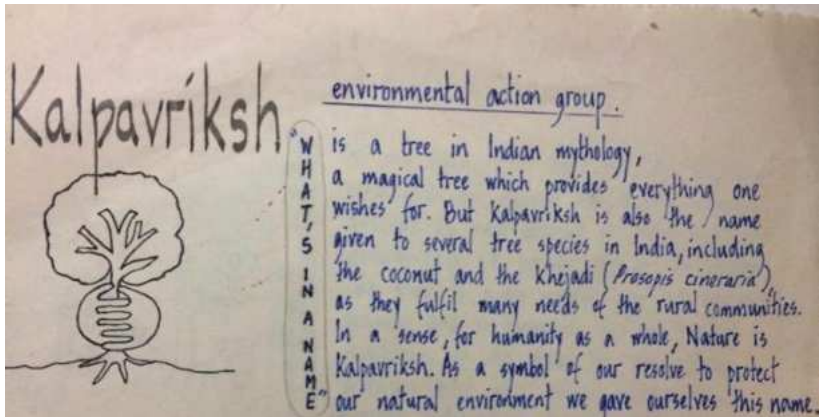 Kalpavriksh
environmental action group.
"WHAT'S IN A NAME"
is a tree in Indian mythology,
a magical tree which provides everything one
wishes for. But Kalpavriksh is also the name
given to several tree species in India, including
the coconut and the Khejadi (Prosopis cineraria),
as they fulfil many needs of the rural communities.
In a sense, for humanity as a whole, Nature is
Kalpavriksh. As a symbol of our resolve to protect
our natural environment we gave ourselves this name.